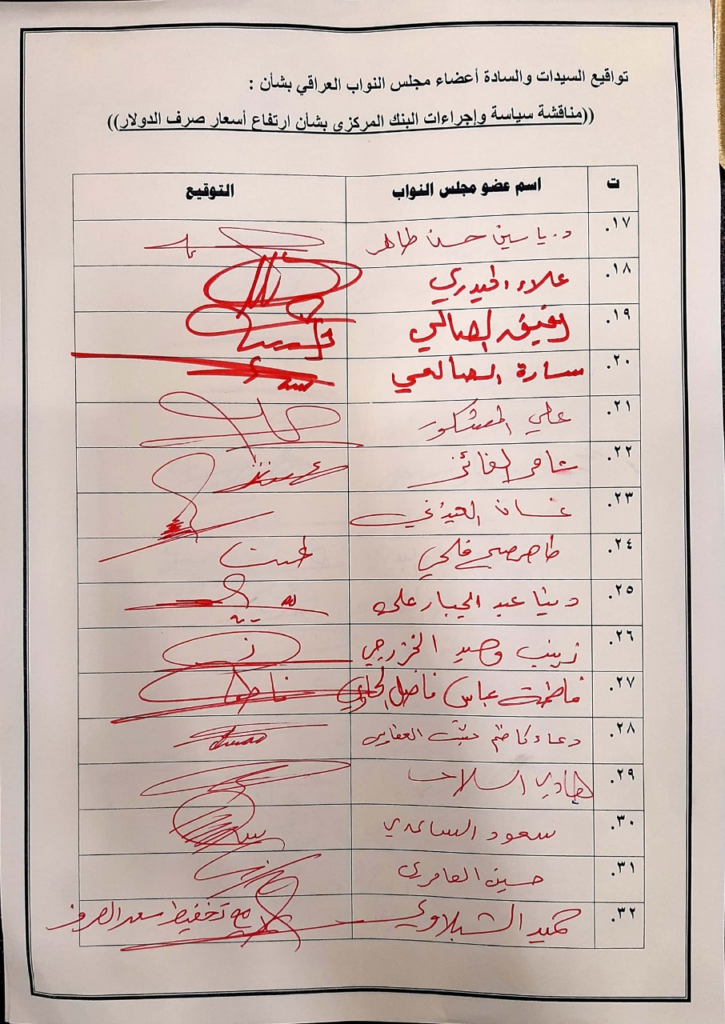 تواقيع السيدات والسادة أعضاء مجلس النواب العراقي بشأن :
((مناقشة سياسة وإجراءات البنك المركزي بشأن ارتفاع أسعار صرف الدولار))
ت اسم عضو مجلس النواب التوقيع
.١٧ د. ياسين حسن طاهر
.١٨ علاء الحيدري
.١٩ رفيق الصالحي
.٢٠ سارة الصالحي
.٢١ علي المشكور
.٢٢ ثامر الفائز
.٢٣ غسان العيداني
.٢٤ فلحي
.٢٥ دنيا عبد الجبار علي
.٢٦ زينب وحيد الخزرجي
.٢٧ فاطمة عباس فاضل فاطمة
.٢٨ دعاء كاظم
.٢٩ هادي السلامي
.٣٠ سعود الساعدي
.٣١ حسين العامري
.٣٢ حميد الشبلاوي مع تخفيض سعر الصرف